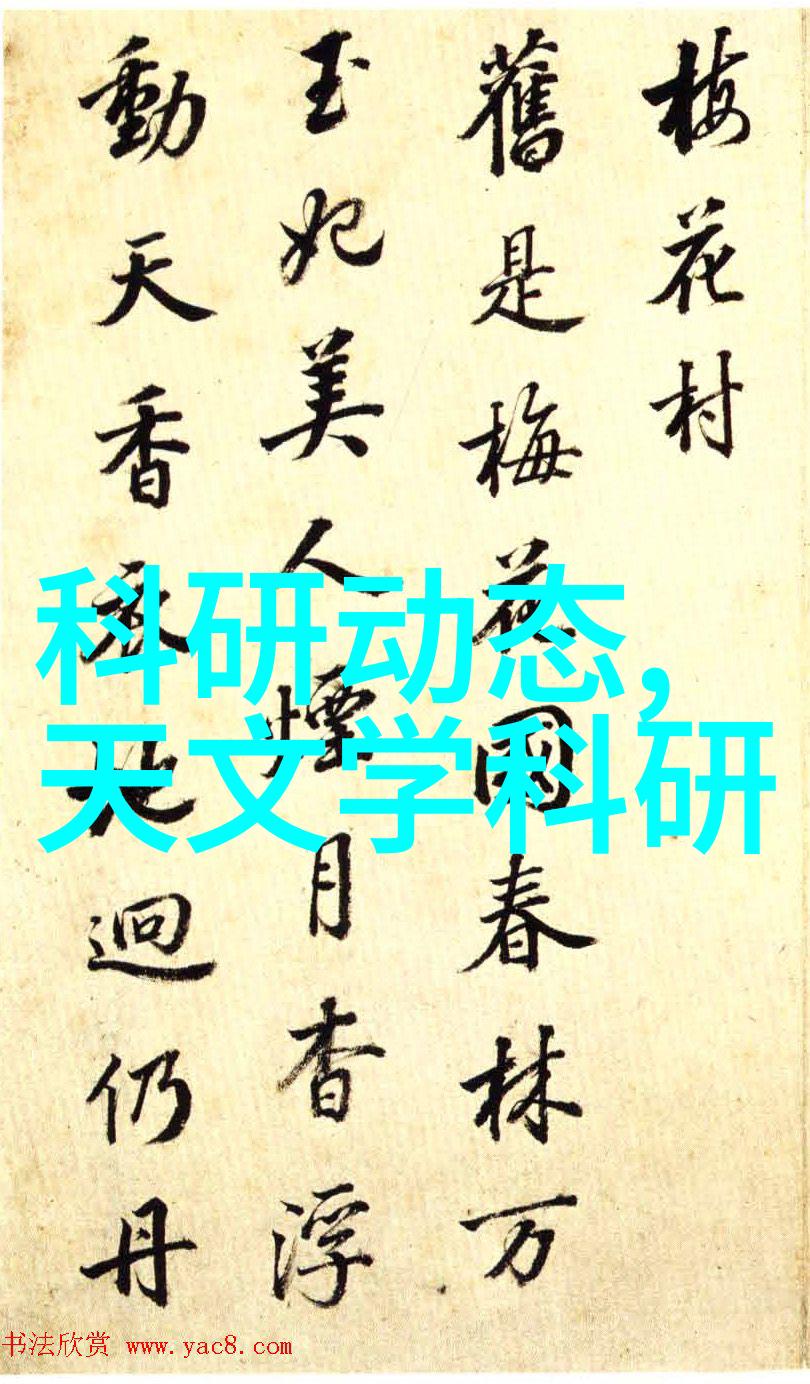 梅花村
舊是梅花國春林万
玉妃美人煙月杳浮
動天香迴仍丹
科研动态,
天文学科研
书法欣赏 www.yac8.com